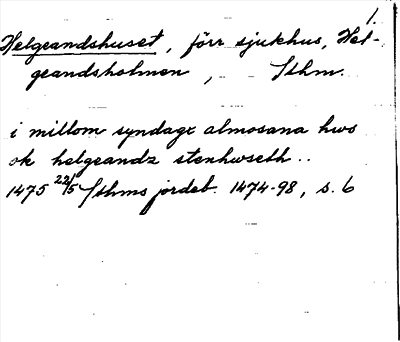 1.
Helgeandshuset, förr sjukhus, Hel-
geandsholmen, Sthm.
i millom syndagx almosana hws
ok helgeandz stenhwseth..
1475 22/5 Sthms jordeb. 1474-98, s. 6